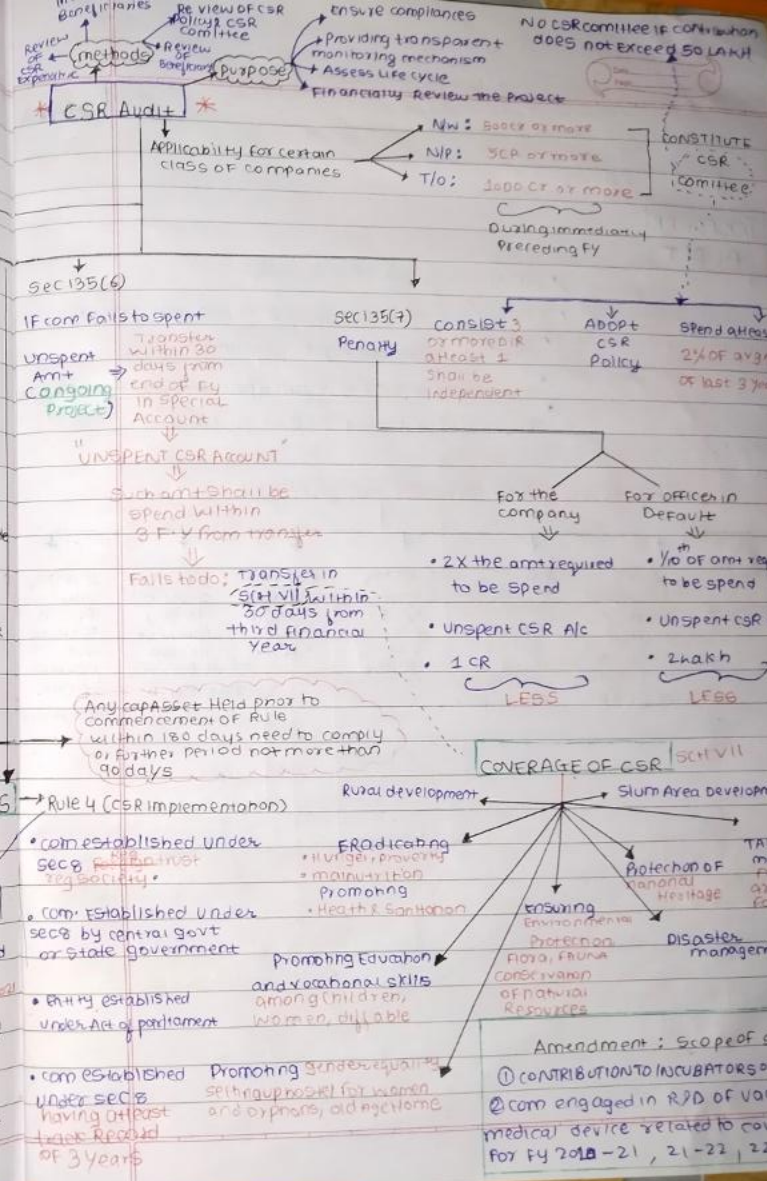 Beneficiaries
Review of CSR
Policy & CSR
Comittee
Review
OF
CSR
Expenditure
methods
Review
OF
Beneficiary
Purpose
Ensure compliances
Providing transparent
monitoring mechanism
Assess Life cycle
Financially Review the Project
No CSR comittee if contribution
does not exceed 50 LAKH
* CSR Audit *
Applicability for certain
class of companies
N/W: 500cr or more
N/P: 5CR or more
T/O: 1000 Cr or more
During immediatly
Preceding FY
CONSTITUTE
CSR
Comittee
Sec 135(6)
IF com Fails to spent
unspent
Amt
(ongoing
Project)
Transfer
within 30
days from
end of FY
in special
Account
"UNSPENT CSR ACCOUNT"
Such amt shall be
spend within
3 F.Y from transfer
Fails to do: Transfer in
SCH VII within
30 days from
third financial
year
Sec 135(7)
Penalty
consist 3
or more DIR
atleast 1
shall be
independent
ADOPT
CSR
Policy
Spend atleas
2% OF avg
of last 3 y
For the
company
• 2X the amt required
to be spend
• Unspent CSR A/c
• 1 CR
LESS
For officer in
Default
• 1/10th OF amt req
to be spend
• Unspent CSR
• 2 Lakh
LESS
Any cap Asset Held prior to
commencement OF Rule
within 180 days need to comply
or further period not more than
90 days
Rule 4 (CSR implementation)
• com established under
sec 8 trust
reg society.
• com. Established under
sec 8 by central govt
or state government
• Entity established
under Act of parliament
• com established
under sec 8
having atleast
track Record
OF 3 years
COVERAGE OF CSR SCH VII
Rural development
Slum Area Developm
ERadicating
• Hunger, proverty
• malnutrition
Promoting
• Heath & Sanitation
Promoting Education
and vocational skills
among children,
women, diffable
Promoting gender equality
setting up hostel for women
and orphans, old age Home
Ensuring
Environmental
Protection
Flora, FAUNA
conservation
of natural
Resources
Protection OF
national
Heritage
Disaster
managem
Amendment: Scope of
① CONTRIBUTION TO INCUBATORS O
② com engaged in R&D OF va
medical device related to co
For FY 2020-21, 21-22, 22